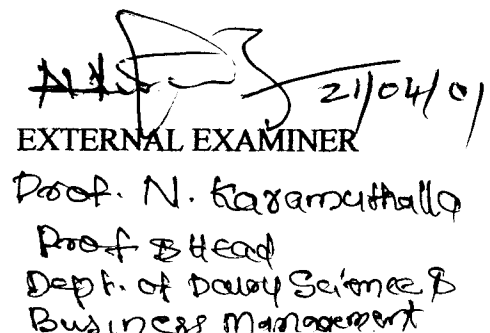 21/04/01
EXTERNAL EXAMINER
Prof. N. Karamathulla
Prof & Head
Dept. of Dairy Science &
Business Management